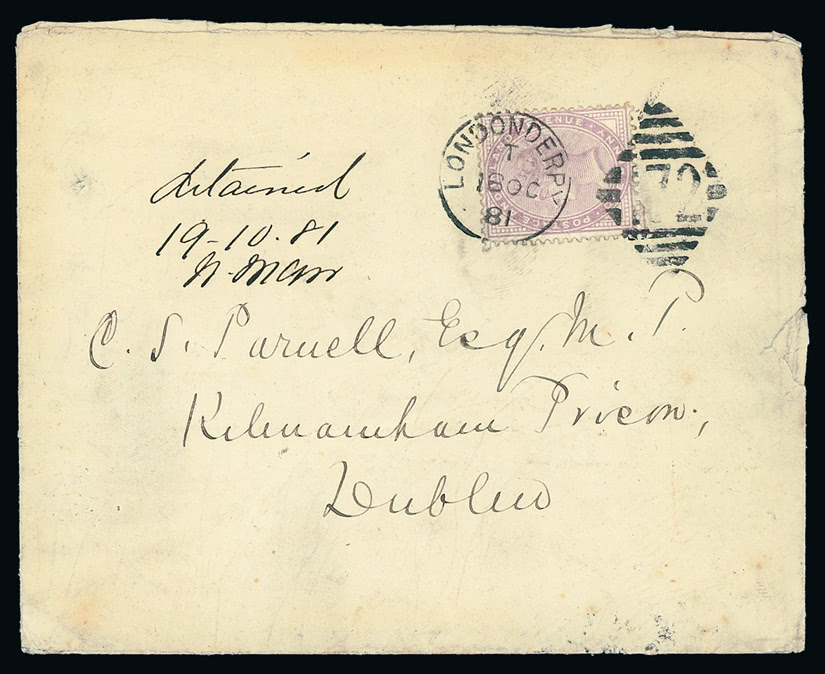 LONDONDERRY
T
18 OC
81
POSTAGE
172
detained
19-10.81
C. S. Parnell, Esq. M. P.
Kilmainham Prison,
Dublin